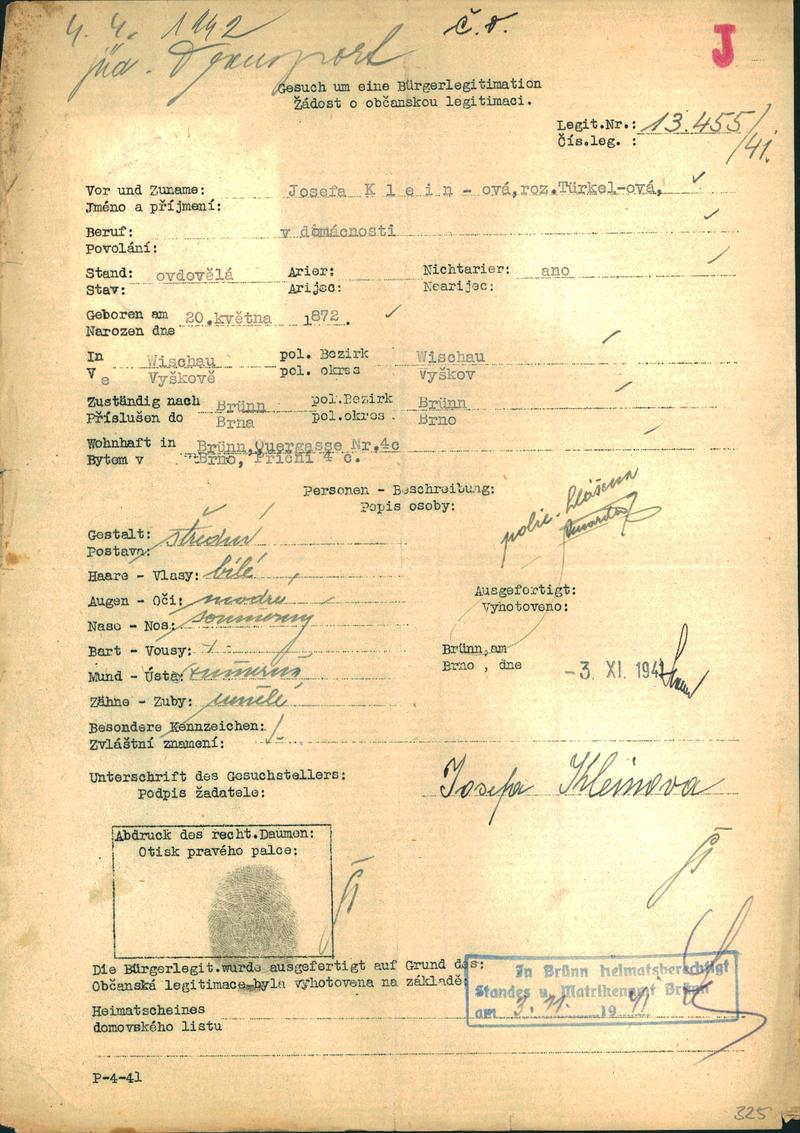 4. 4. 1942
jüd. Transport
č.d.
J
Gesuch um eine Bürgerlegitimation
Žádost o občanskou legitimaci.
Legit.Nr.: 13.455/41.
Čís.leg. :
Vor und Zuname: Josefa K l e i n - ová,roz.Türkel-ová,
Jméno a příjmení:
Beruf: v domácnosti
Povolání:
Stand: ovdovělá Arier: Nichtarier: ano
Stav: Arijec: Nearijec:
Geboren am 20.května 1872.
Narozen dne
In Wischau pol. Bezirk Wischau
V e Vyškově pol. okres Vyškov
Zuständig nach Brünn pol.Bezirk Brünn
Příslušen do Brna pol.okres . Brno
Wohnhaft in Brünn,Quergasse Nr.4c
Bytem v Brno, Příční 4 c.
Personen - Beschreibung:
Popis osoby:
polic. hlášena
Gestalt: střední
Postava:
Haare - Vlasy: bílé
Augen - Oči: modré
Nase - Nos: souměrný
Bart - Vousy:
Mund - Ústa: souměrná
Zähne - Zuby: umělé
Besondere Kennzeichen:
Zvláštní znamení:
Ausgefertigt:
Vyhotoveno:
Brünn,am
Brno , dne -3 XI. 1941
Unterschrift des Gesuchstellers:
Podpis žadatele:
Josefa Kleinova
Abdruck des recht.Daumen:
Otisk pravého palce:
Die Bürgerlegit.wurde ausgefertigt auf Grund des:
Občanská legitimace byla vyhotovena na základě:
Heimatscheines
domovského listu
In Brünn heimatsberechtigt
Standes u. Matrikenamt Brünn
am 3. 11. 1941
P-4-41
325